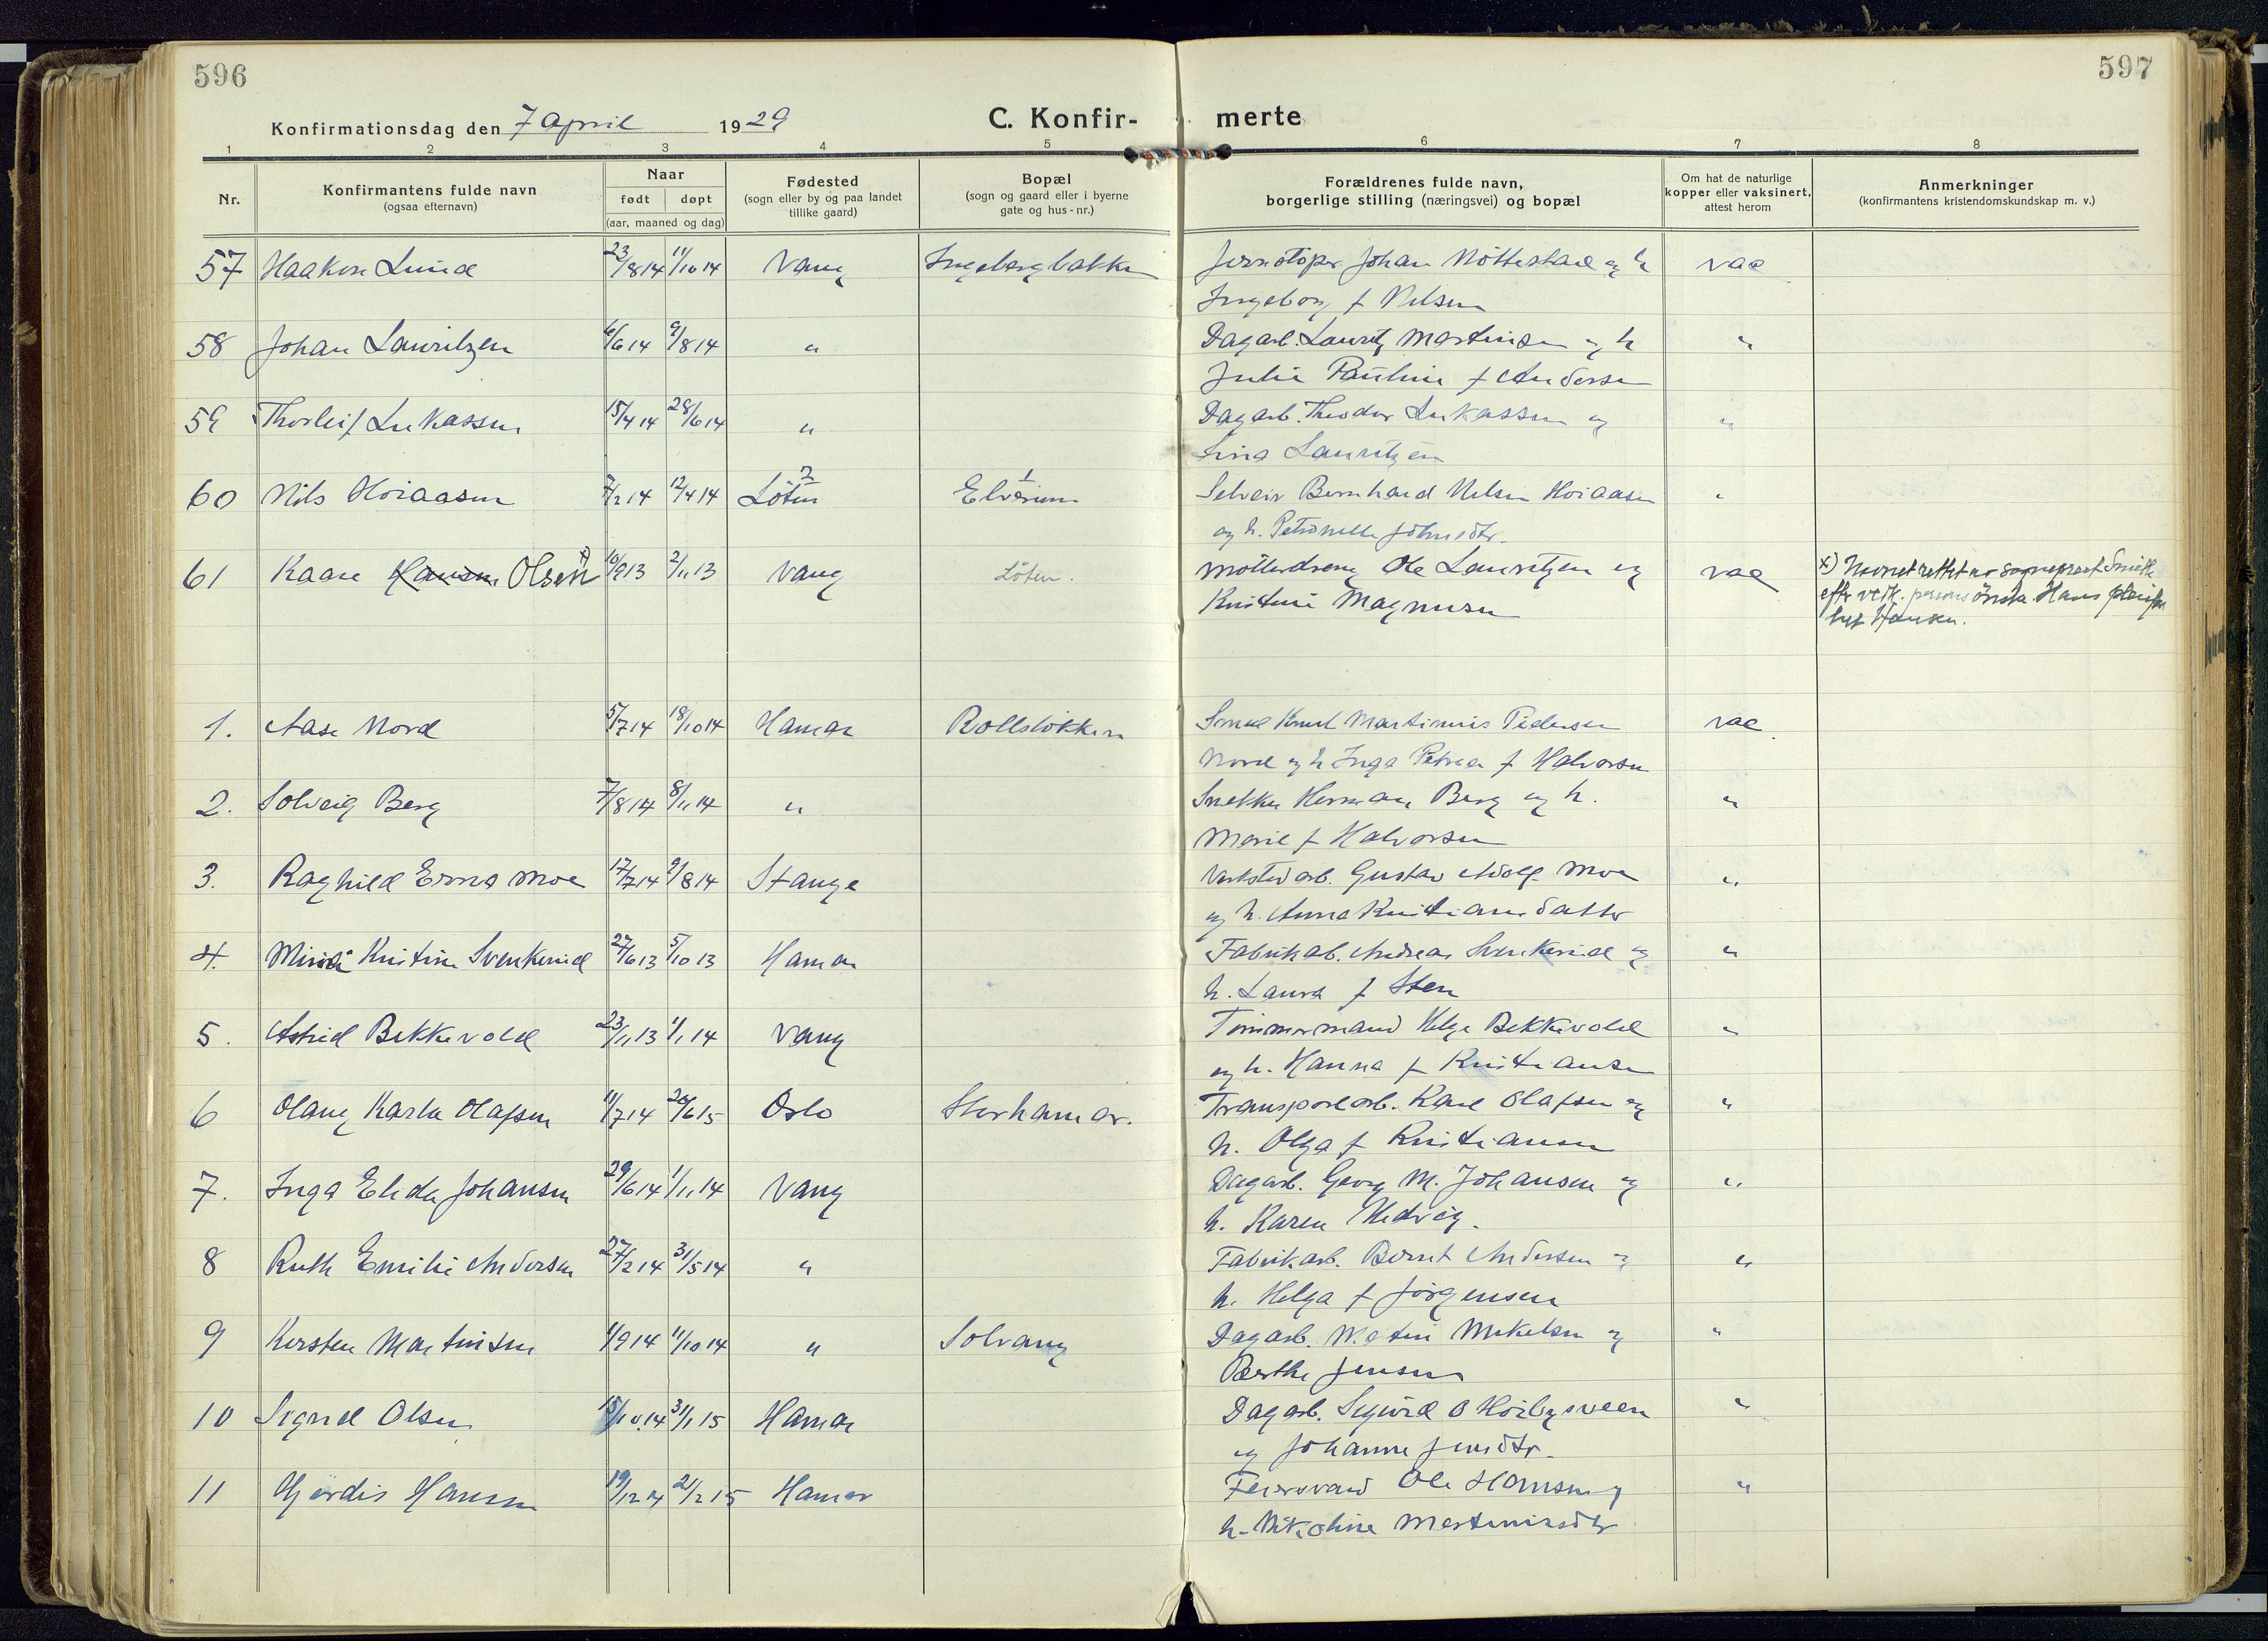 596
597
Konfirmationsdag den 7 April 1929
C. Konfir- merte
1 2 3 4 5 6 7 8
Nr.
Konfirmantens fulde navn
(ogsaa efternavn)
Naar
født døpt
(aar, maaned og dag)
Fødested
(sogn eller by og paa landet
tillike gaard)
Bopæl
(sogn og gaard eller i byerne
gate og hus-nr.)
Forældrenes fulde navn,
borgerlige stilling (næringsvei) og bopæl
Om hat de naturlige
kopper eller vaksinert,
attest herom
Anmerkninger
(konfirmantens kristendomskundskap m. v.)
57 Haakon Lund 23/8 14 11/10 14 Vang Ingebergbakken Jernstøper Johan Nøttestad og h vac
Ingeborg f Nilsen
58 Johan Lauritzen 6/6 14 9/8 14 " Dagarb. Lauritz Martinsen og h "
Julie Pauline f Andersen
59 Thorleif Lukassen 15/4 14 28/6 14 " Dagarb. Theodor Lukassen og "
Lina Lauritzen
60 Nils Hoiaasen 7/2 14 12/4 14 Løten 2 Elverum 1 Selveir Bernhard Nilsen Hoiaasen "
og h. Petronelle Johnsdtr.
61 Kaare Hansen Olsen x) 10/9 13 2/11 13 Vang Løten. Møllerdreng Ole Lauritzen og vac x) Navnet rettet av sogneprest Smith
Kristine Magnusen efter vedk. persons ønske. Hans
het Hansen.
1. Aase Nord 5/7 14 18/10 14 Hamar Rollsløkken Smed Knut Martinius Pedersen vac
Nord og h Inga Petrea f Halvorsen
2. Solveig Berg 7/8 14 8/11 14 " Snekker Herman Berg og h. "
Marie f Halvorsen
3. Raghild Erna Moe 17/7 14 9/8 14 Stange Verkstedarb. Gustav Adolf Moe "
og h. Anna Kristiansdatter
4. Kristine Svenkerud 27/6 13 5/10 13 Hamar Fabrikarb. Andreas Svenkerud og "
h. Laura f Sten
5. Astrid Bekkevold 23/11 13 1/1 14 Vang Tømmermand Helge Bekkevold "
og h. Hanna f Kristiansen
6 Olaug Karla Olafsen 11/7 14 20/6 15 Oslo Storhamar. Transportarb. Karl Olafsen og "
h. Olga f Kristiansen
7. Inga Elida Johansen 29/6 14 1/11 14 Vang Dagarb. Georg M. Johansen og "
h. Karen Hedvig.
8 Ruth Emilie Andersen 27/2 14 31/5 14 " Fabrikarb. Bernt Andersen og "
h. Helga f Jørgensen
9 Kersten Martinsen 1/9 14 11/10 14 " Solvang Dagarb. Martin Mikelsen og "
Berthe Jensen
10 Signe Olsen 15/10 14 31/1 15 Hamar Dagarb. Sigurd O Høibysveen "
og Johanne Jensdtr.
11 Hjørdis Hansen 19/12 14 21/2 15 Hamar Feiersvend Ole Hansen og "
h. Nikoline Martiniusdtr